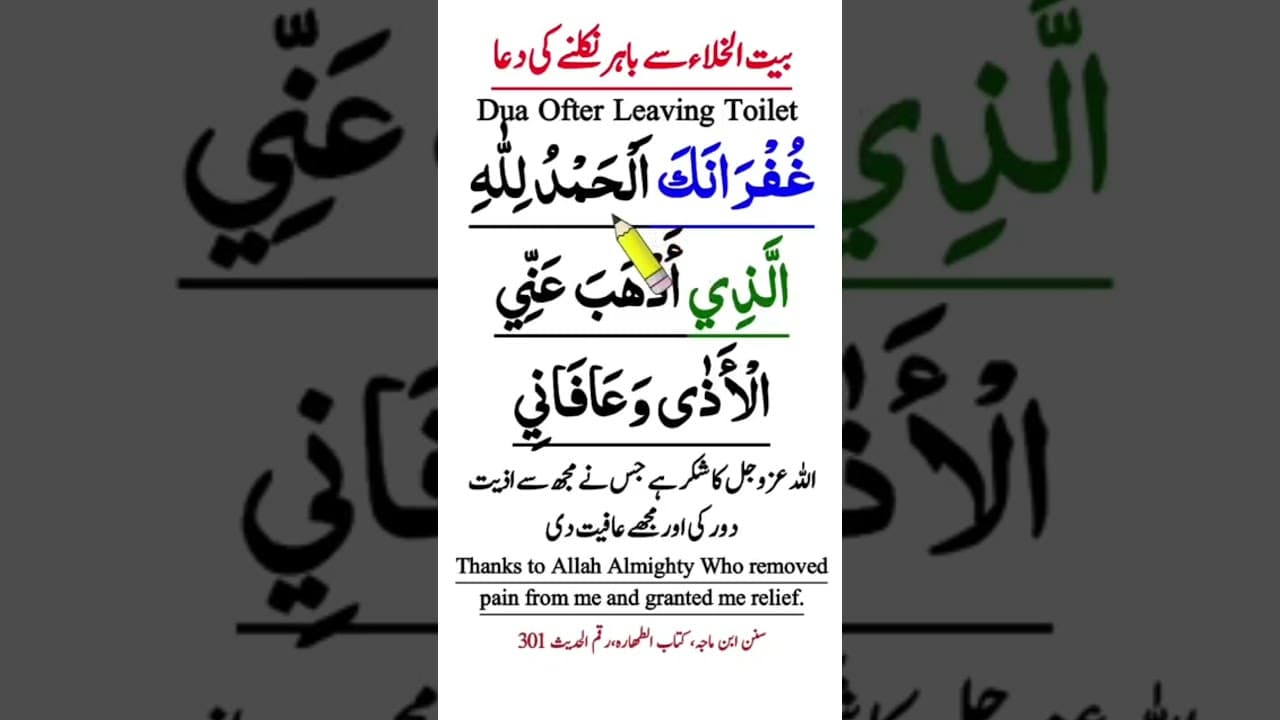 بیت الخلاء سے باہر نکلنے کی دعا
Dua Ofter Leaving Toilet
غُفْرَانَكَ اَلْحَمْدُ لِلّٰهِ
الَّذِي أَذْهَبَ عَنِّي
الْأَذٰى وَعَافَانِي
اللہ عزوجل کا شکر ہے جس نے مجھ سے اذیت
دور کی اور مجھے عافیت دی
Thanks to Allah Almighty Who removed
pain from me and granted me relief.
سنن ابن ماجہ، کتاب الطھارہ،رقم الحدیث 301